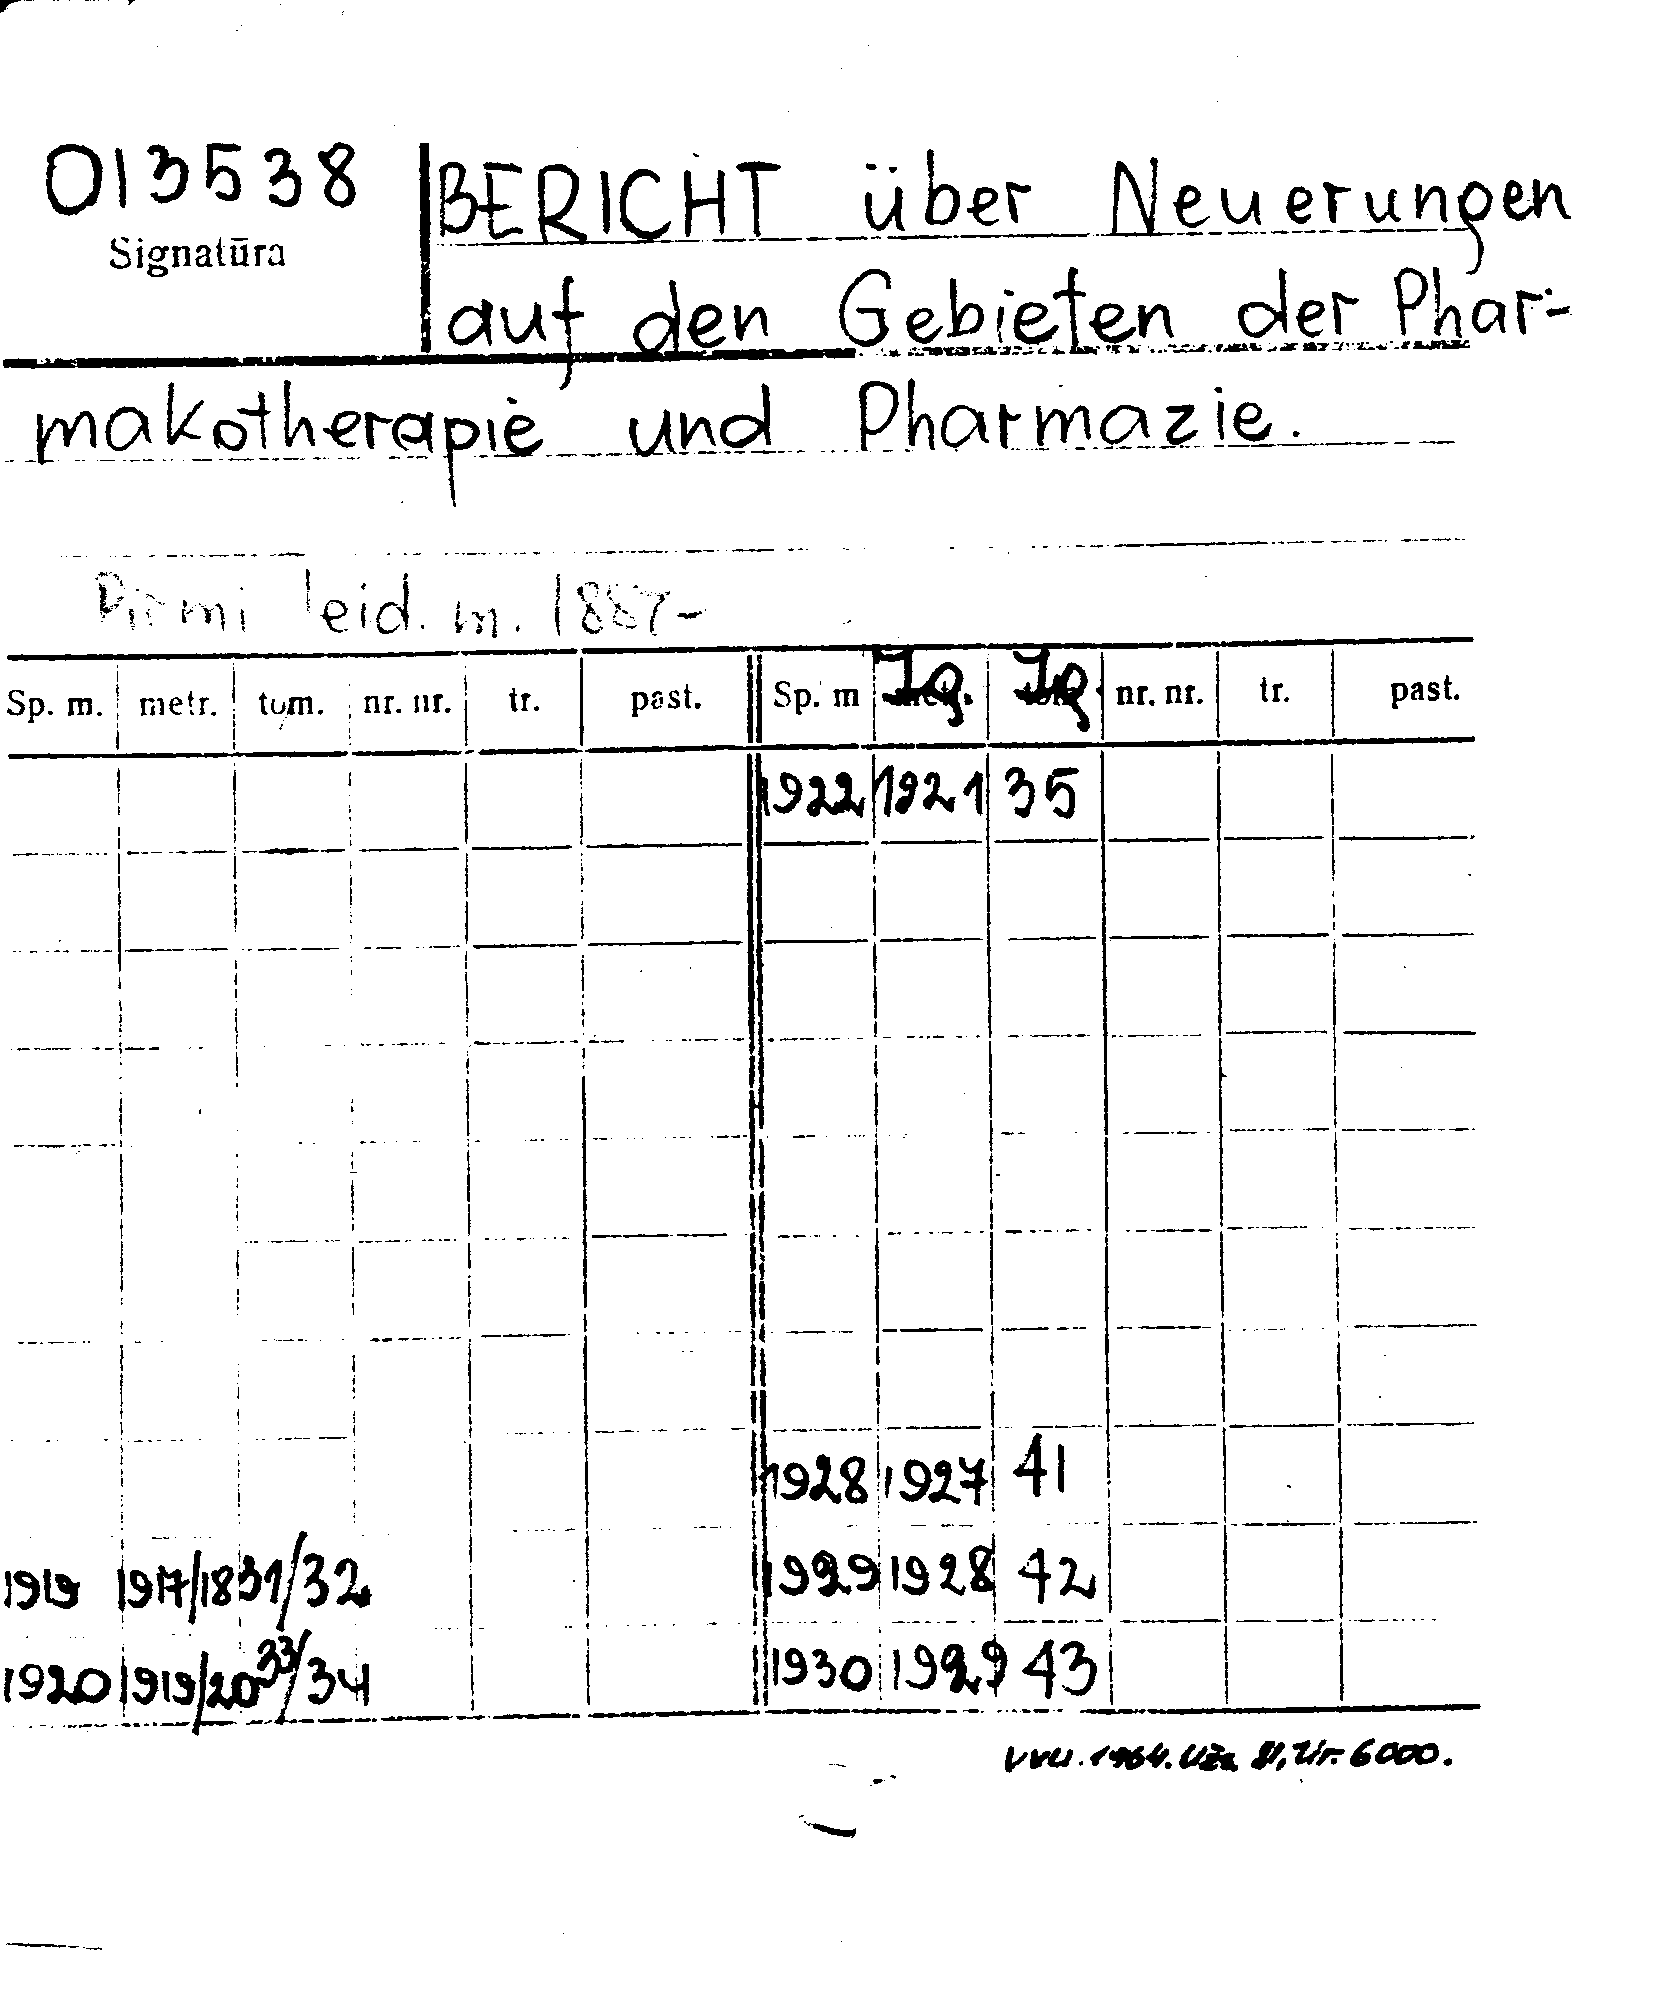 013538
Signatūra
BERICHT über Neuerungen
auf den Gebieten der Phar-
makotherapie und Pharmazie.
Pirmi leid. m. 1887-
Sp. m. metr. tom. nr. nr. tr. past. Sp. m Jg. Jg. nr. nr. tr. past.
1922 1921 35
1928 1927 41
1919 1917/18 31/32 1929 1928 42
1920 1919/20 33/34 1930 1929 43
VVU. 1964. Užs. Tir. 6000.